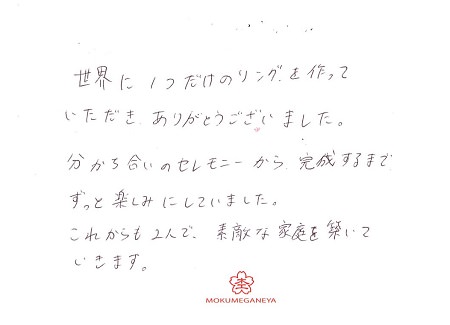 世界に1つだけのリングを作って
いただき、ありがとうございました。
分かち合いのセレモニーから、完成するまで
ずっと楽しみにしていました。
これからも2人で、素敵な家庭を築いて
いきます。
MOKUMEGANEYA